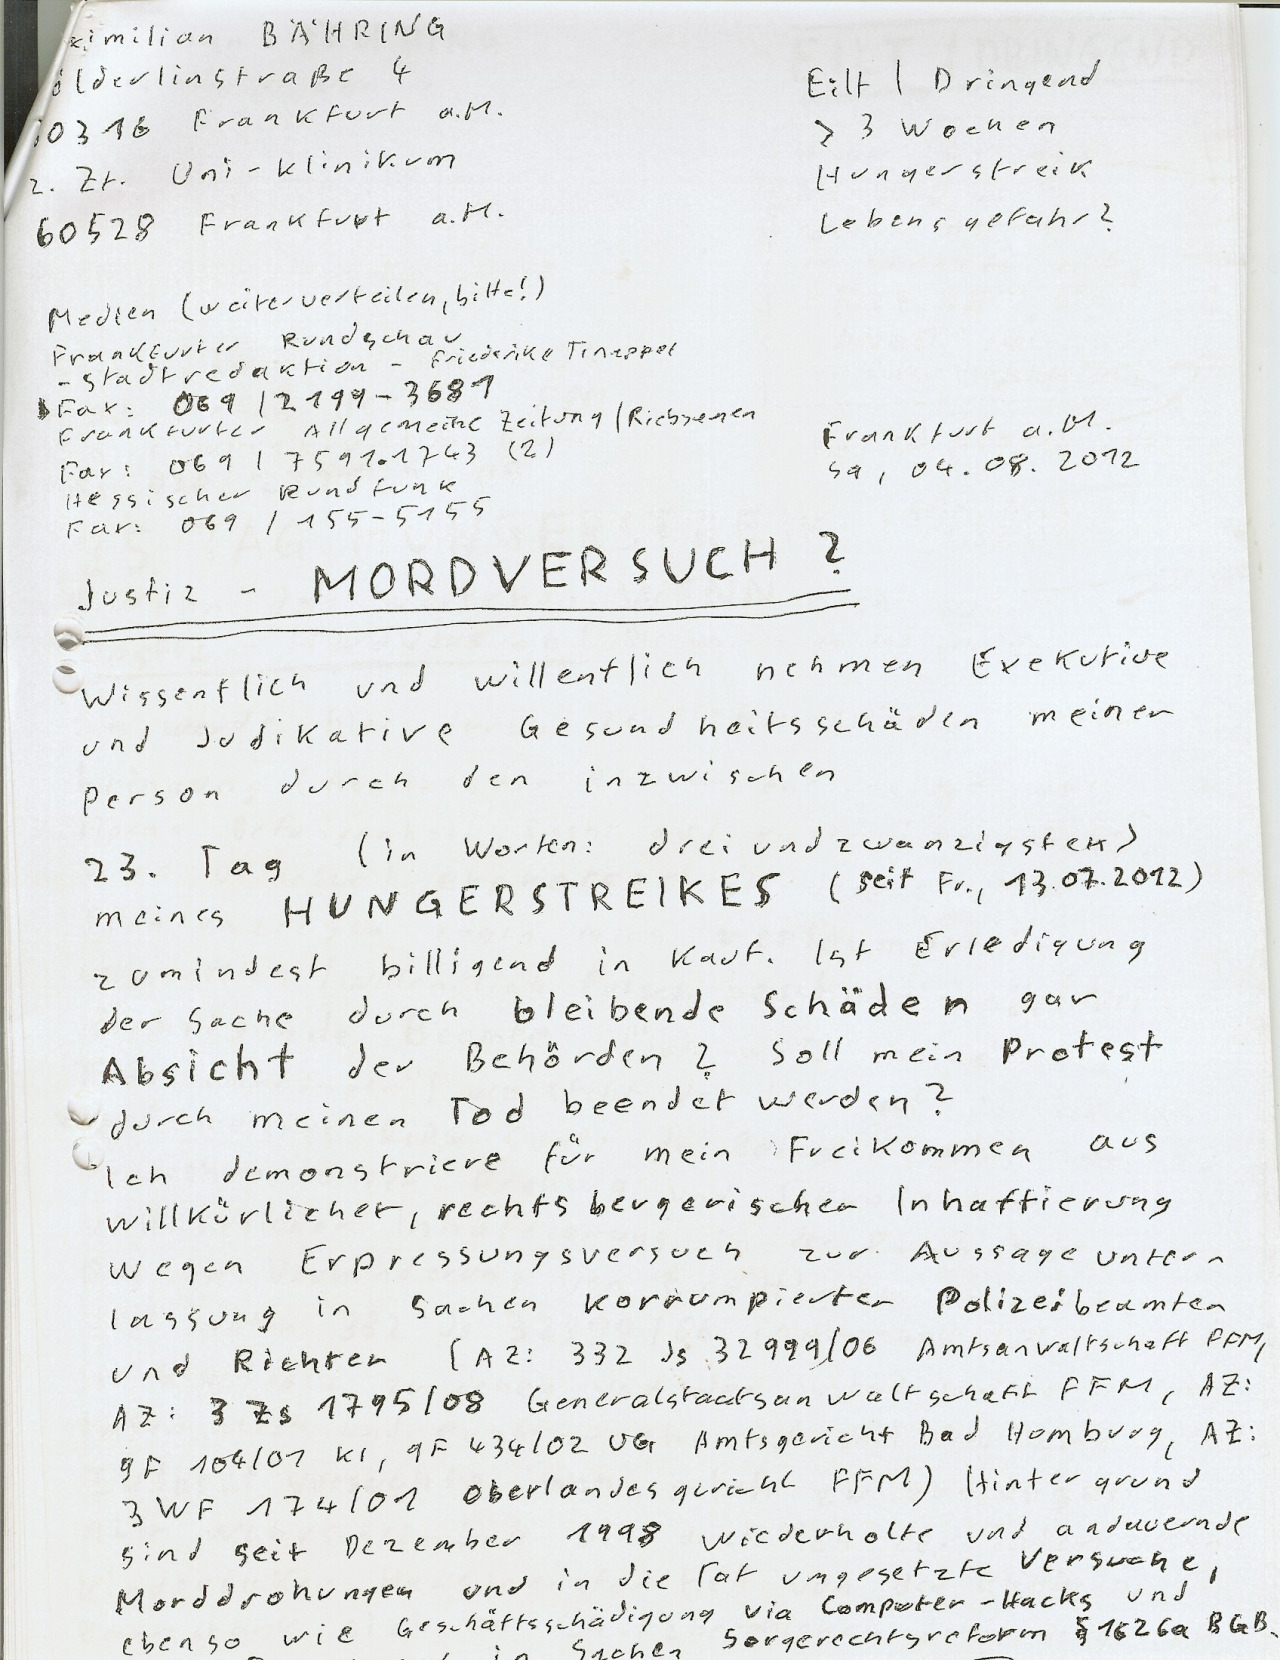 ximilian BÄHRING
ölderlinstraße 4
60316 Frankfurt a.M.
z. Zt. Uni-Klinikum
60528 Frankfurt a.M.
Eilt / Dringend
> 3 Wochen
Hungerstreik
Lebensgefahr?
Medien (weiterverteilen, bitte!)
Frankfurter Rundschau
- Stadtredaktion - Friederike Tinappel
Fax: 069 / 2199-3681
Frankfurter Allgemeine Zeitung /
Fax: 069 / 7591-1743 (2)
Hessischer Rundfunk
Fax: 069 / 155-5155
Frankfurt a.M.
Sa, 04.08.2012
Justiz - MORDVERSUCH ?
Wissentlich und willentlich nehmen Exekutive
und Judikative Gesundheitsschäden meiner
Person durch den inzwischen
23. Tag (in Worten: dreiundzwanzigsten)
meines HUNGERSTREIKES (seit Fr., 13.07.2012)
zumindest billigend in Kauf. Ist Erledigung
der Sache durch bleibende Schäden gar
Absicht der Behörden? Soll mein Protest
durch meinen Tod beendet werden?
Ich demonstriere für mein Freikommen aus
willkürlicher, rechtsbergerischer Inhaftierung
wegen Erpressungsversuch zur Aussageunter-
lassung in Sachen korrumpierter Polizeibeamten
und Richter (AZ: 332 Js 32999/06 Amtsanwaltschaft FFM,
AZ: 3 Zs 1795/08 Generalstaatsanwaltschaft FFM, AZ:
9F 104/01 KI, 9F 434/02 UG Amtsgericht Bad Homburg, AZ:
3 WF 174/01 Oberlandesgericht FFM) Hintergrund
sind seit Dezember 1998 wiederholte und andauernde
Morddrohungen und in die Tat umgesetzte Versuche,
ebenso wie Geschäftsschädigung via Computer-Hacks und
in Sachen Sorgerechtsreform §1626a BGB.